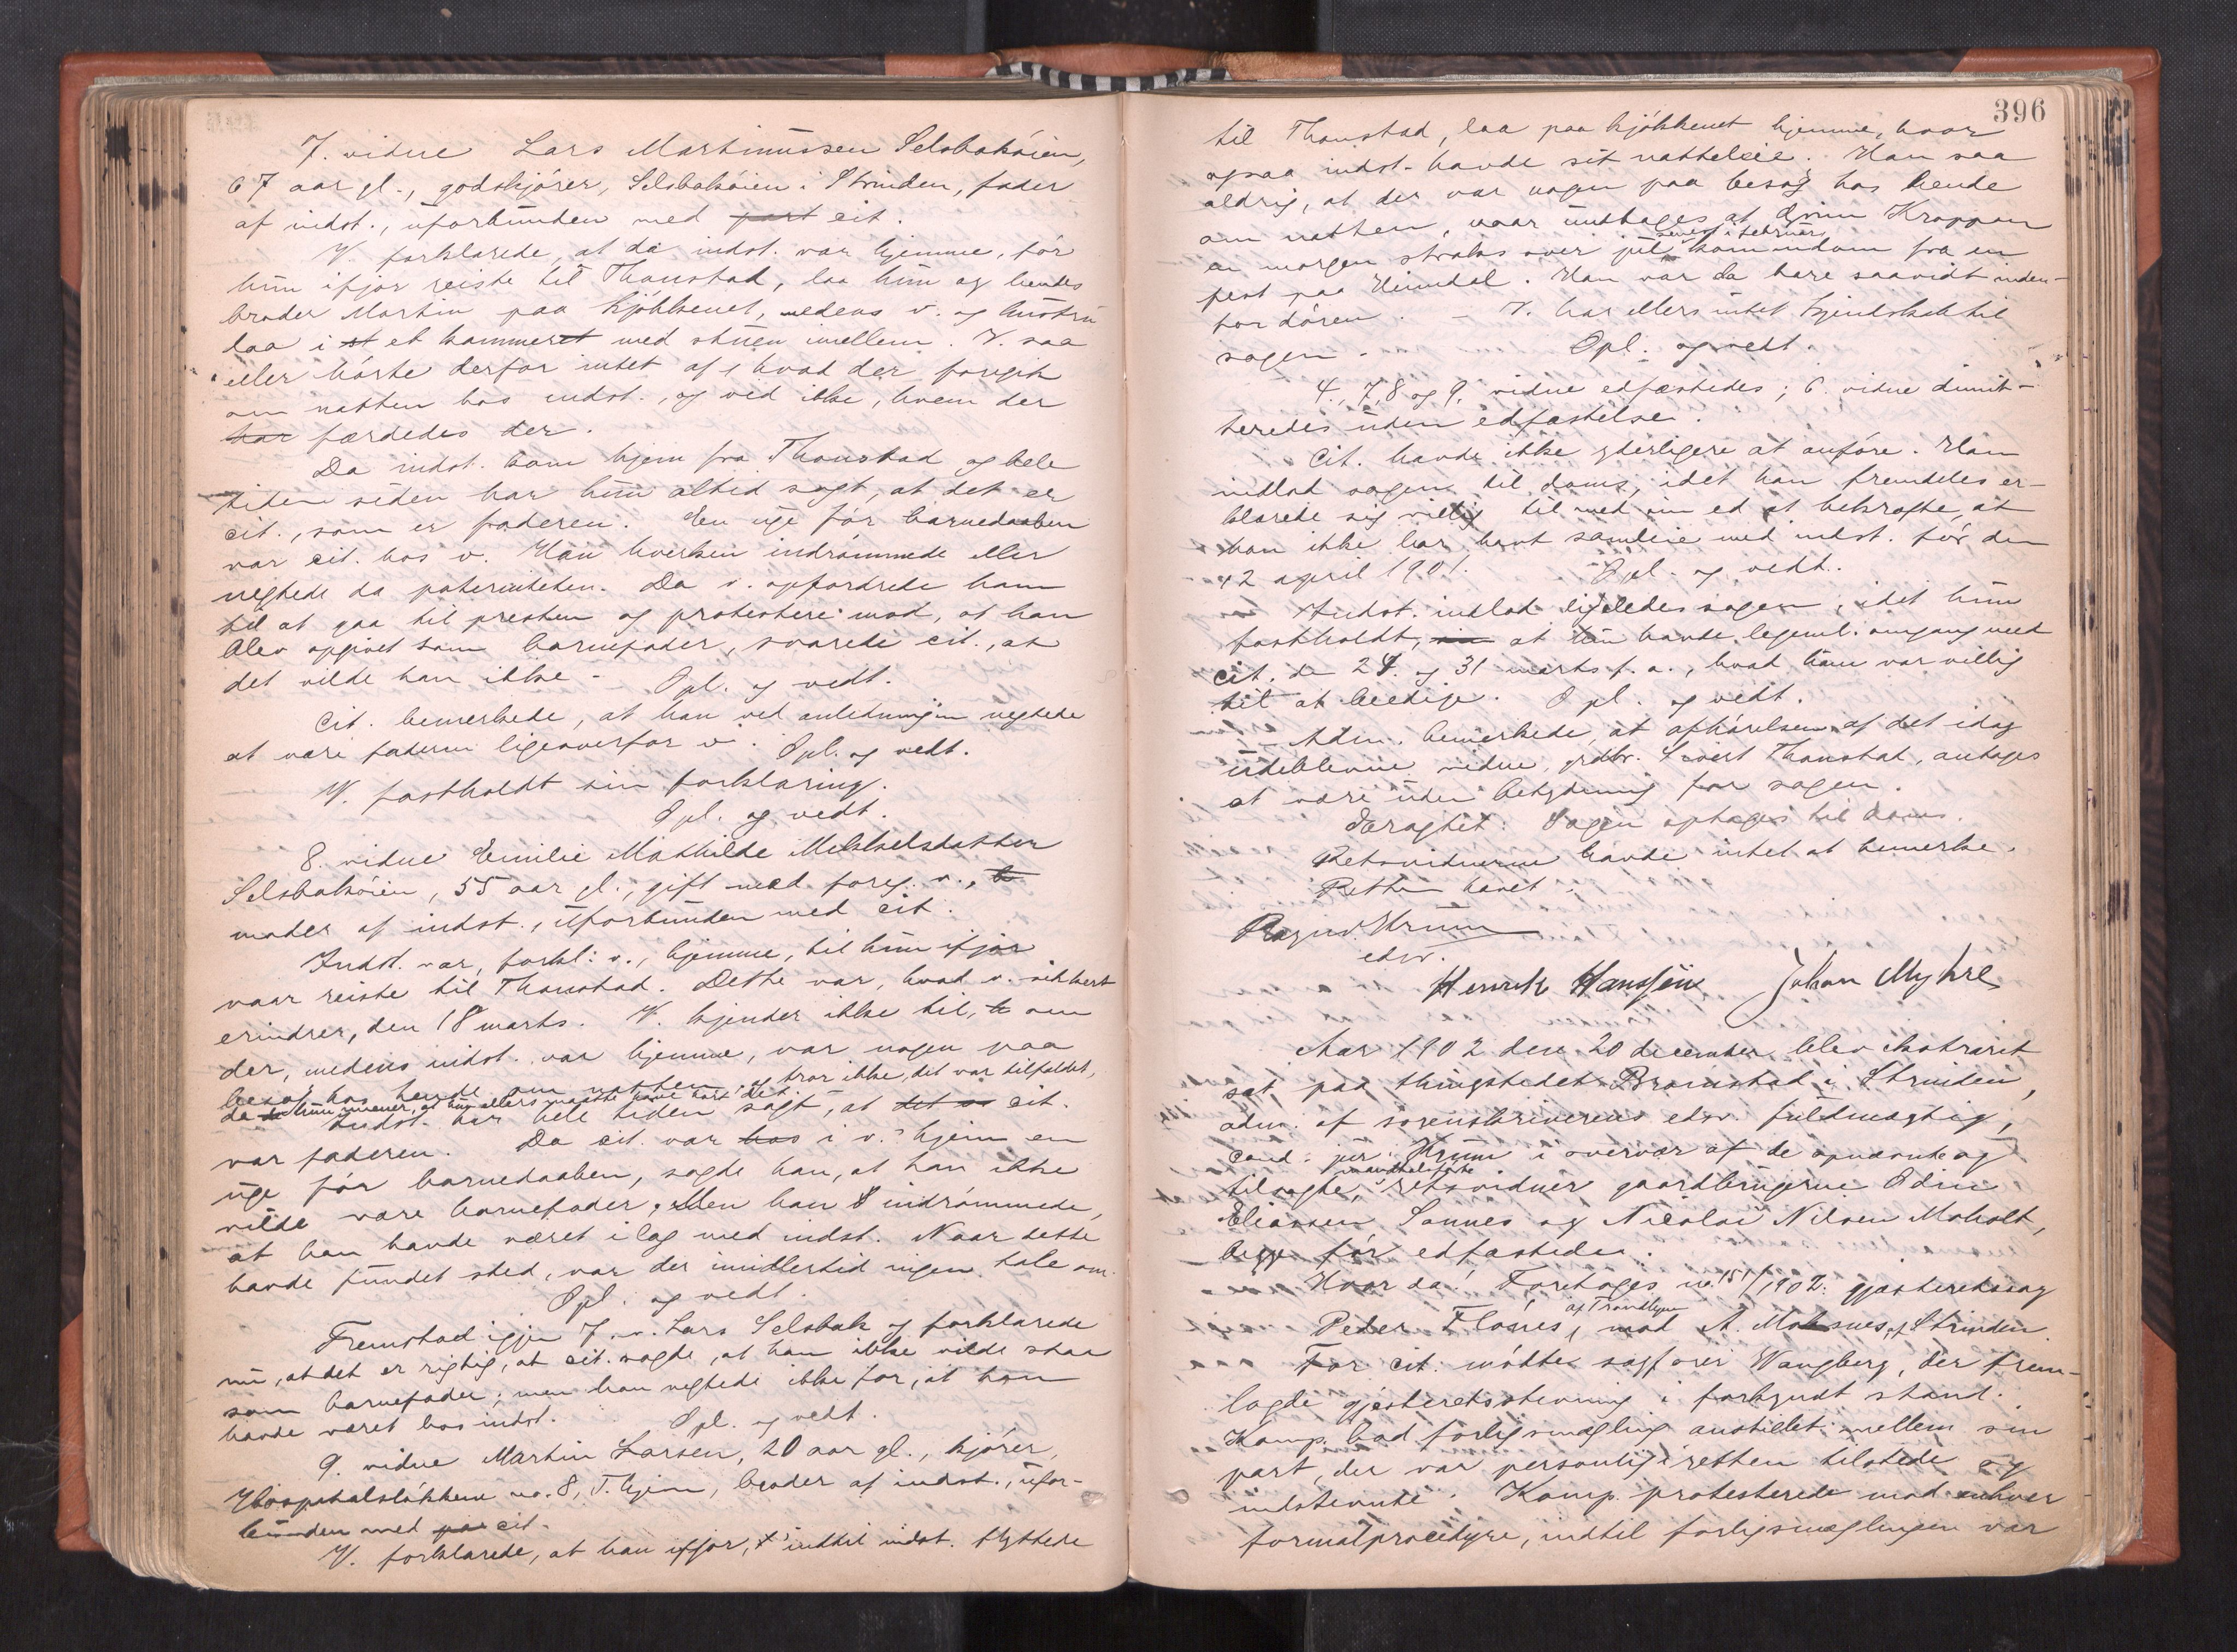 7. vidne Lars Martinussen Selsbakøien,
67 aar gl., godskjører, Selsbakøien i Strinden, fader
af indst., uforbunden med part cit.
V. forklarede, at da indst. var hjemme, før
hun ifjor reiste til Thonstad, laa hun og hendes
broder Martin paa kjøkkenet, medens v. og hustru
laa i st et kammeret med stuen imellem. V. saa
eller hørte derfor intet af, hvad der foregik
om natten hos indst., og ved ikke, hvem der
har færdedes der.
Da indst. kom hjem fra Thonstad og hele
tiden siden har hun altid sagt, at det er
cit., som er faderen. En uge før barnedaaben
var cit. hos v. Han hverken indrømmede eller
negtede da paterniteten. Da v. opfordrede ham
til at gaa til presten og protestere mod, at han
blev opgivet som barnefader, svarede cit., at
det vilde han ikke. Opl. og vedt.
Cit. bemerkede, at han ved anledningen negtede
at være faderen ligeoverfor v. Opl. og vedt.
V. fastholdt sin forklaring.
Opl. og vedt.
8. vidne Emilie Mathilde Mikkelsdatter
Selsbakøien, 55 aar gl., gift med foreg. v.,
moder af indst., uforbunden med cit.
Indst. var, forkl. v., hjemme, til hun ifjor
vaar reiste til Thonstad. Dette var, hvad v. sikkert
erindrer, den 18 marts. V. kjender ikke til, om
der, medens indst. var hjemme, var nogen paa
besøg hos hende om natten, og tror ikke, det var tilfældet,
da hun mener, at hun ellers maatte have hørt det.
Indst. har hele tiden sagt, at det er cit.
var faderen. Da cit. var hos i v.s hjem en
uge før barnedaaben, sagde han, at han ikke
vilde være barnefader, Men han indrømmede,
at han havde været i lag med indst. Naar dette
havde fundet sted, var der imidlertid ingen tale om.
Opl. og vedt.
Fremstod igjen 7. v. Lars Selsbak og forklarede
nu, at det er rigtig, at cit. sagde, at han ikke vilde staa
som barnefader; men han negtede ikke for, at han
havde været hos indst. Opl. og vedt.
9. vidne Martin Larsen, 20 aar gl., kjører,
Hospitalsløkken no. 8, T.hjem, broder af indst., ufor-
bunden med par cit.
V. forklarede, at han ifjor, indtil indst. flyttede
396
til Thonstad, laa paa kjøkkenet hjemme, hvor
ogsaa indst. havde sit natteleie. Han saa
aldrig, at der var nogen paa besøg hos hende
om natten, naar undtages at Kroppan
en morgen straks over jul senest i februar kom indom fra en
fest paa Heimdal. Han var da bare saavidt inden-
for døren. - V. har ellers intet kjendskab til
sagen. Opl. og vedt.
4., 7, 8 og 9. vidne edfæstedes; 6. vidne dimit-
teredes uden edfæstelse.
Cit. havde ikke yderligere at anføre. Han
indlod sagen til doms, idet han fremdeles er-
klærede sig villig til med sin ed at bekræfte, at
han ikke har havt samleie med indst. før den
12 april 1901. Opl. og vedt.
Indst. indlod ligeledes sagen, idet hun
fastholdt, at hun havde legeml. omgang med
cit. de 24. og 31 marts f. a., hvad hun var villig
til at beedige. Opl. og vedt.
Adm. bemerkede, at afhørelsen af det idag
udeblevne vidne, grdbr. Sivert Thonstad, antages
at være uden betydning for sagen.
Eragtet: Sagen optages til doms.
Retsvidnerne havde intet at bemerke.
Retten hævet.
Ragnv. Krum
edsv.
Henrik Hanssen Johan Myhre
Aar 1902 den 20 december blev ekstraret
sat paa thingstedet Bromstad i Strinden,
adm. af sorenskriverens edsv. fuldmægtig,
cand. jur. Krum i overvær af de opnævnte og
tilsagte, mandtalsførte retsvidner gaardbrugerne Odin
Eliassen Sannes og Nicolai Nilsen Moholt,
begge før edfæstede.
Hvor da! Foretages no. 151/1902: gjæsteretssag
Peder Flønes, af Trondhjem mod A. Moksnes, af Strinden.
For cit. mødte sagfører Wangberg, der frem-
lagde gjesteretsstevning i forkyndt stand.
Komp. bad forligsmægling anstillet mellem sin
part, der var personlig i retten tilstede og
indstevnte. Komp. protesterede mod enhver
formalprocedyre, indtil forligsmæglingen var